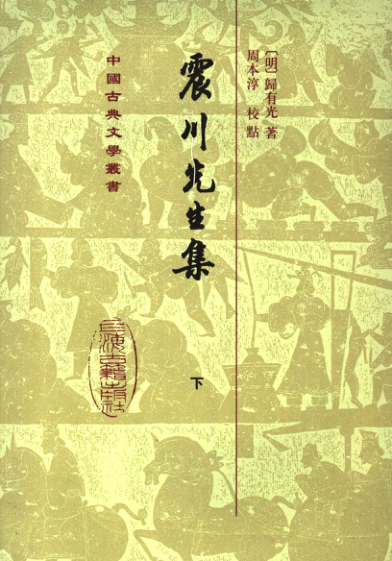 〔明〕歸有光 著
周本淳 校點
震川先生集
下
中國古典文學叢書
上海古籍出版社